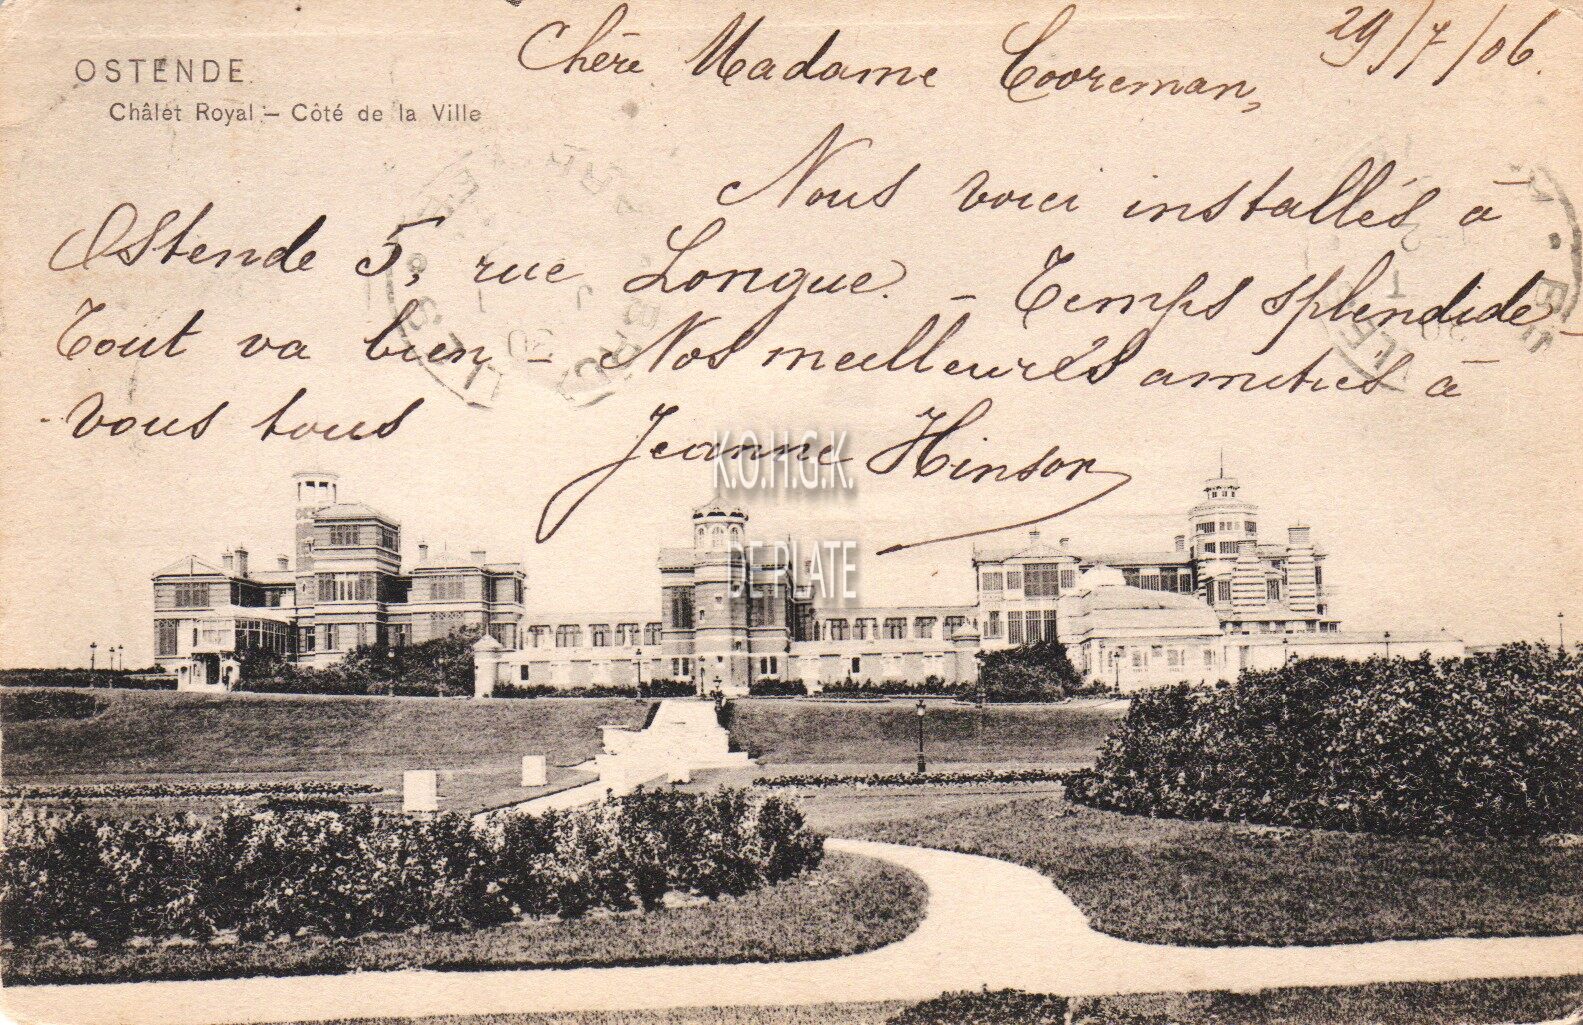 OSTENDE
Châlet Royal – Côté de la Ville
29/7/06.
Chère Madame Cooreman,
Nous voici installés à
Ostende 5, rue Longue. – Temps splendide –
Tout va bien – Nos meilleures amitiés à
vous tous
Jeanne Hinson
K.O.H.G.K.
DE PLATE